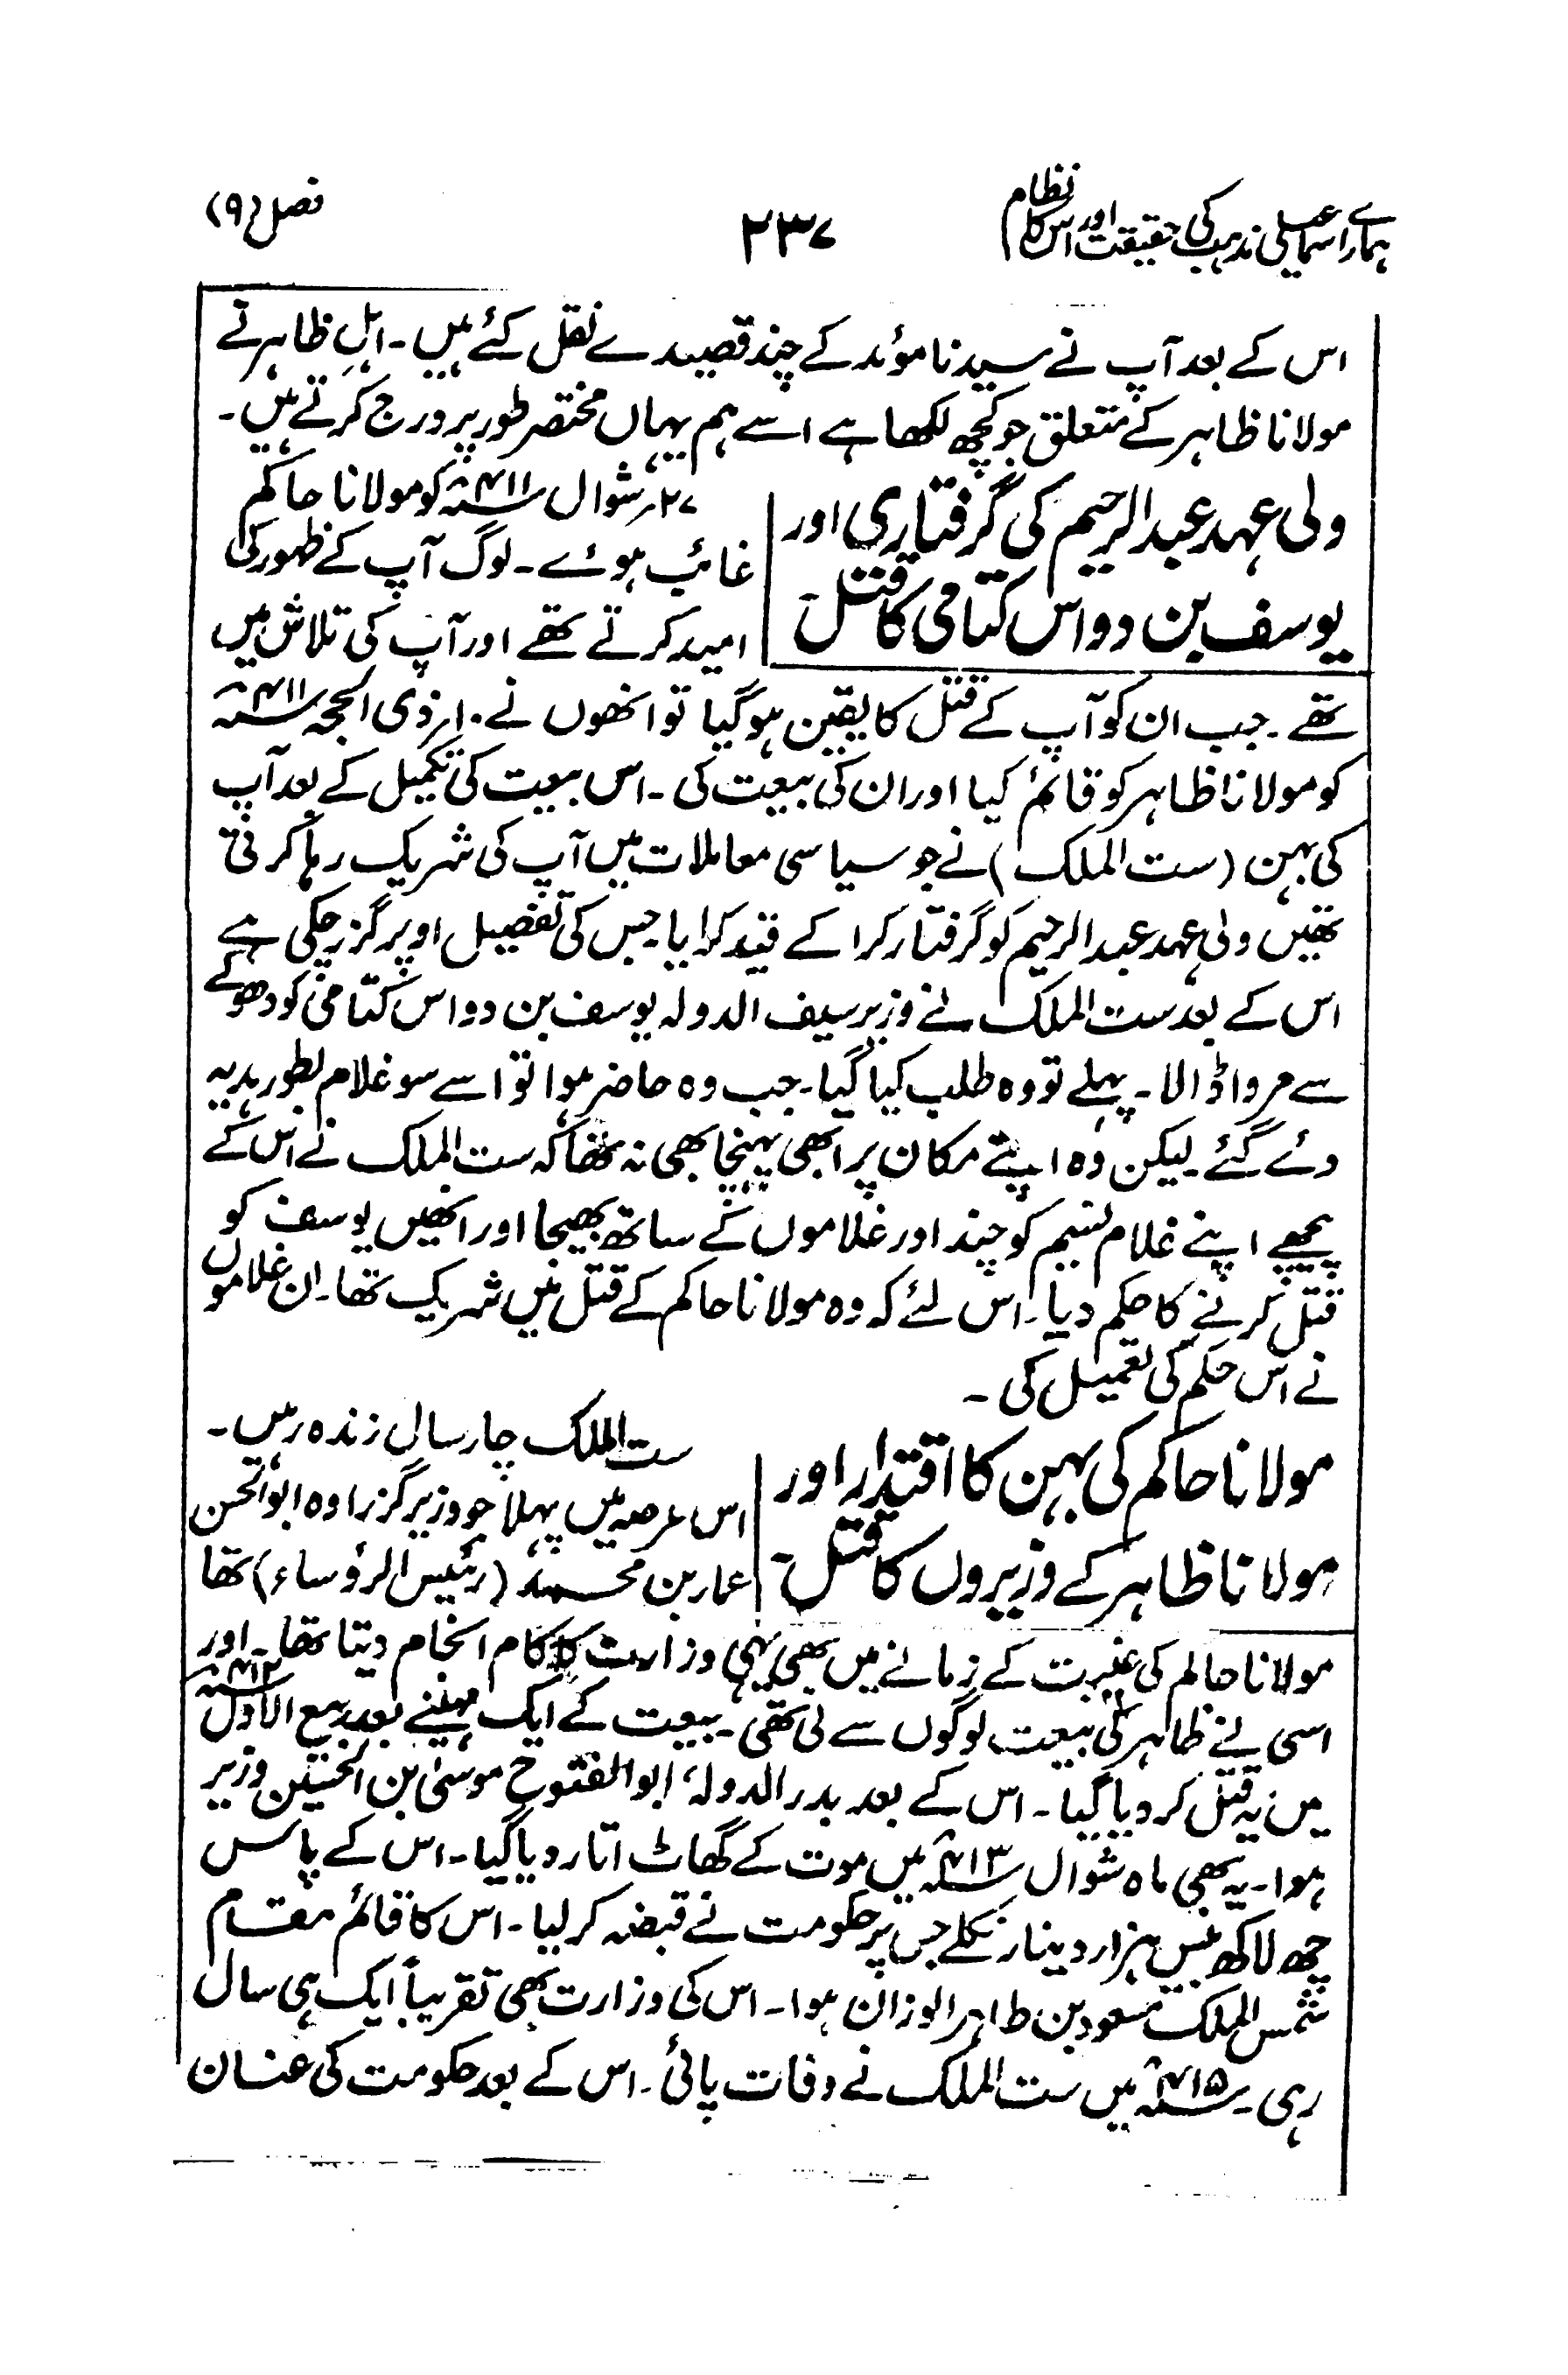 ہمارے اسماعیلی مذہب کی حقیقت اور اس کا نظام
۲۳۷
فصل (۹)
اس کے بعد آپ نے سیدنا مؤید کے چند قصیدے نقل کئے ہیں۔ اہلِ ظاہر نے
مولانا ظاہر کے متعلق جو کچھ لکھا ہے اسے ہم یہاں مختصر طور پر درج کرتے ہیں۔
ولی عہد عبدالرحیم کی گرفتاری اور
یوسف بن دواس کتامی کا قتل۔
۲۷ر شوال ۴۱۱ھ کو مولانا حاکم
غائب ہوئے۔ لوگ آپ کے ظہور کی
امید کرتے تھے اور آپ کی تلاش میں
تھے۔ جب ان کو آپ کے قتل کا یقین ہو گیا تو انھوں نے ۱۰ر ذی الحجہ ۴۱۱ھ
کو مولانا ظاہر کو قائم کیا اور ان کی بیعت کی۔ اس بیعت کی تکمیل کے بعد آپ
کی بہن (ست الملک) نے جو سیاسی معاملات میں آپ کی شریک رہا کرتی
تھیں ولی عہد عبدالرحیم کو گرفتار کرا کے قید کرایا۔ جس کی تفصیل اوپر گزر چکی ہے
اس کے بعد ست الملک نے وزیر سیف الدولہ یوسف بن دواس کتامی کو دھوکے
سے مروا ڈالا۔ پہلے تو وہ طلب کیا گیا۔ جب وہ حاضر ہوا تو اسے سو غلام بطور ہدیہ
دئے گئے۔ لیکن وہ اپنے مکان پر ابھی پہنچا بھی نہ تھا کہ ست الملک نے اس کے
پیچھے اپنے غلام نسیم کو چند اور غلاموں کے ساتھ بھیجا اور انھیں یوسف کو
قتل کرنے کا حکم دیا۔ اس لئے کہ وہ مولانا حاکم کے قتل میں شریک تھا۔ ان غلاموں
نے اس حکم کی تعمیل کی۔
مولانا حاکم کی بہن کا اقتدار اور
مولانا ظاہر کے وزیروں کا قتل۔
ست الملک چار سال زندہ رہیں۔
اس عرصہ میں پہلا جو وزیر گزرا وہ ابوالحسن
عمار بن محمد (رئیس الرؤساء) تھا
مولانا حاکم کی غیبت کے زمانے میں بھی یہی وزارت کا کام انجام دیتا تھا۔ اور
اسی نے ظاہر کی بیعت لوگوں سے لی تھی۔ بیعت کے ایک مہینے بعد ربیع الاول ۴۱۲ھ
میں یہ قتل کر دیا گیا۔ اس کے بعد بدر الدولہ، ابوالفتوح موسیٰ بن الحسین وزیر
ہوا۔ یہ بھی ماہ شوال ۴۱۳ھ میں موت کے گھاٹ اتار دیا گیا۔ اس کے پاس
چھ لاکھ بیس ہزار دینار نکلے جس پر حکومت نے قبضہ کر لیا۔ اس کا قائم مقام
شمس الملک مسعود بن طاہر الوزان ہوا۔ اس کی وزارت بھی تقریباً ایک ہی سال
رہی۔ ۴۱۵ھ میں ست الملک نے وفات پائی۔ اس کے بعد حکومت کی عنان